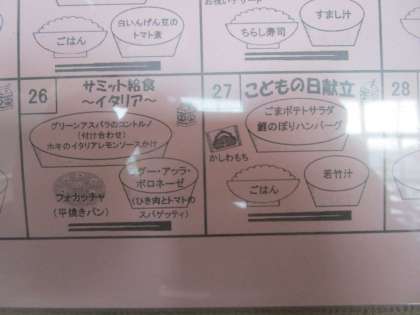 白いんげん豆の
トマト煮
ごはん
すまし汁
ちらし寿司
26
サミット給食
～イタリア～
グリーンアスパラのコントルノ
(付け合わせ)
ホキのイタリアレモンソースかけ
フォカッチャ
(平焼きパン)
グー・アッラ・
ボロネーゼ
(ひき肉とトマトの
スパゲッティ)
27
こどもの日献立
ごまポテトサラダ
鯉のぼりハンバーグ
かしわもち
ごはん
若竹汁
28